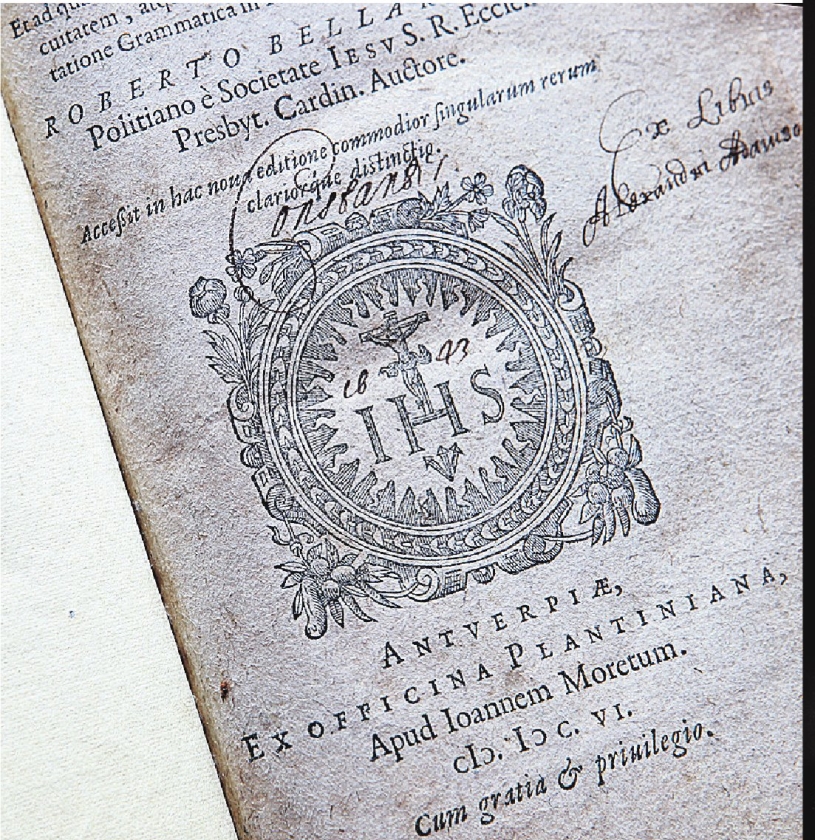 Et ad
cuitatem,
tatione Grammatica in
ROBERTO BELLAR
Politiano è Societate IESV S. R. Eccle
Presbyt. Cardin. Auctore.
Accessit in hac noua editione commodior singularum rerum
clariorque distinctio.
Ex Libris
Alexandri
Constanti
18 43
IHS
ANTVERPIÆ,
EX OFFICINA PLANTINIANA,
Apud Ioannem Moretum.
cIↃ. IↃ C. VI.
Cum gratia & priuilegio.